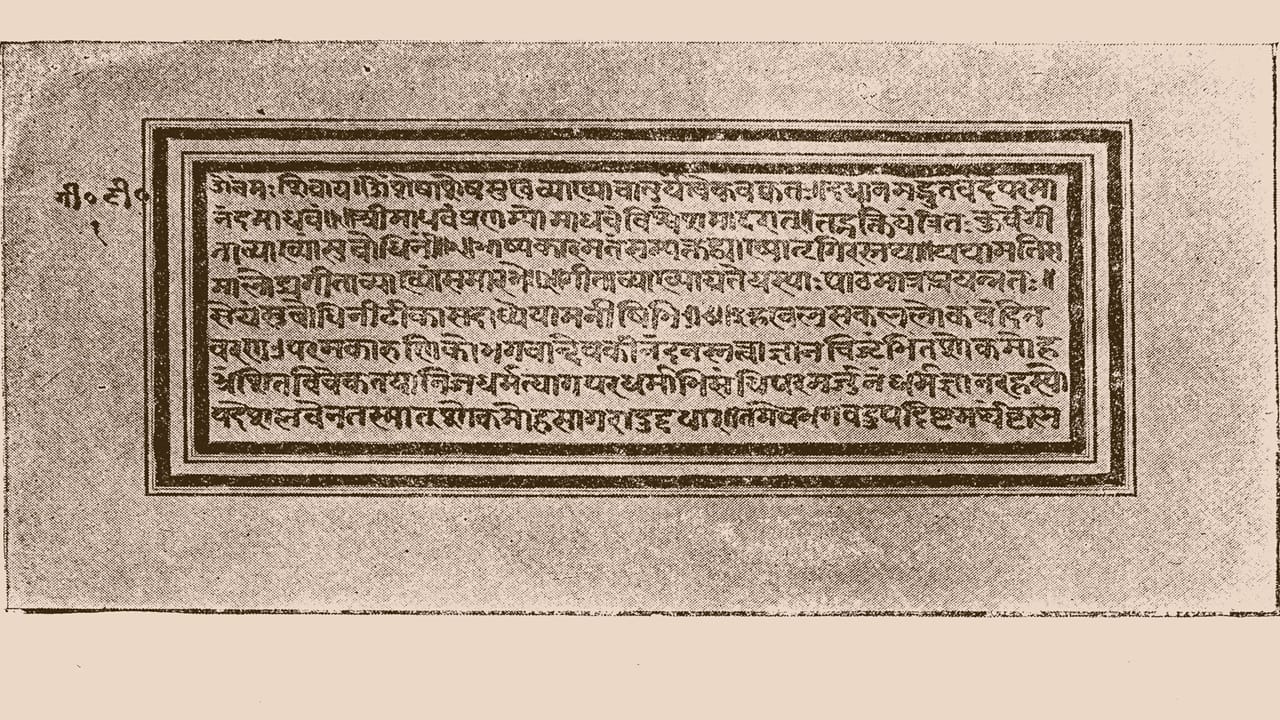 गी॰ टी॰
१
ॐनमः शिवाय॥ॐशेषाशेषमुखव्याख्याचातुर्यंत्वेकवक्त्रतः॥दधानमद्भुतंवंदेपरमा
नंदमाधवं॥१॥श्रीमाधवंप्रणम्योमाधवंविश्वेशमादरात्॥तद्भक्तियंत्रितःकुर्वेगी
ताव्याख्यांसुबोधिनीं॥२॥भाष्यकारमतंसम्यक्तद्व्याख्यातुर्गिरस्तथा॥यथामतिस
मालोच्यगीताव्याख्यांसमारभे॥३॥गीताव्याख्यायतेयस्याःपाठमात्रप्रयत्नतः॥
सेयंसुबोधिनीटीकासदाध्येयामनीषिभिः॥४॥इहखलुसकललोकवंदित
चरणःपरमकारुणिकोभगवान्देवकीनंदनस्तत्वाज्ञानविजृंभितशोकमोह
भ्रंशितविवेकतयानिजधर्मत्यागपरधर्माभिसंधिपरमर्जुनंधर्मज्ञानरहस्यो
पदेशप्लवेनतस्मात्शोकमोहसागरादुद्दधार॥तमेवभगवदुपदिष्टमर्थं